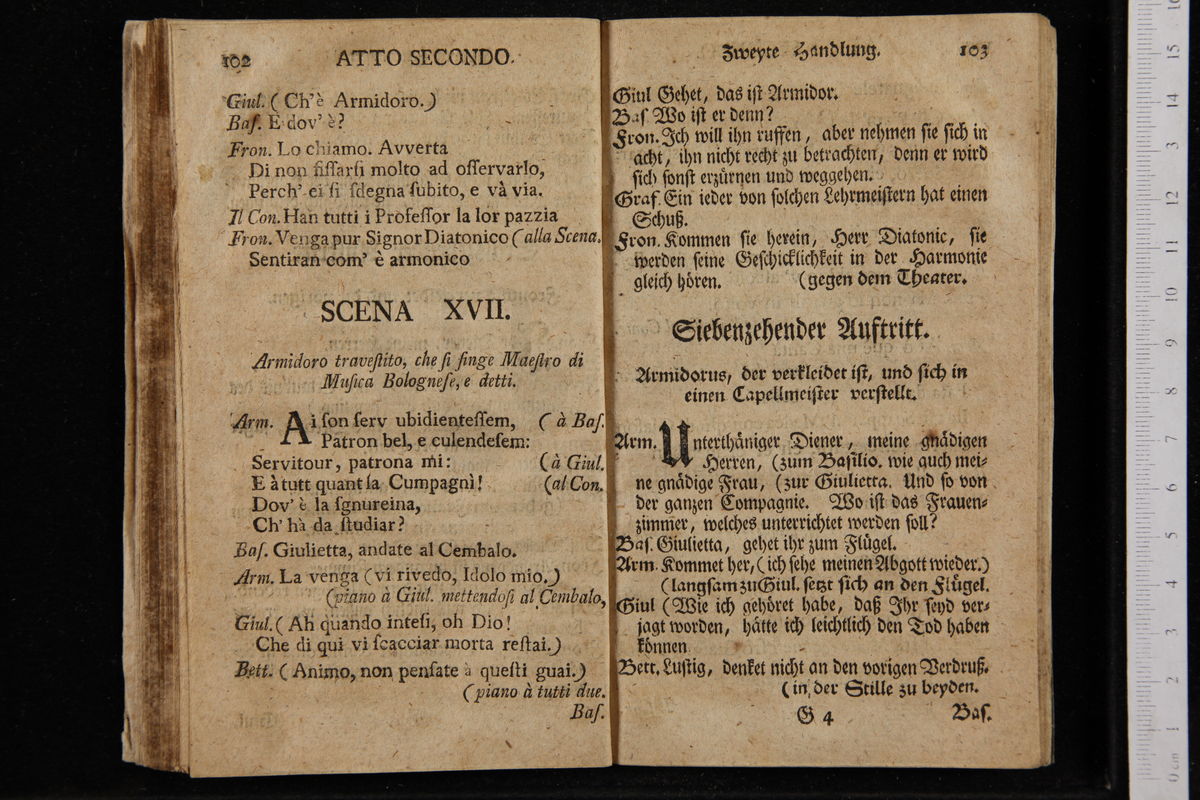 102 ATTO SECONDO.
Giul. ( Ch'è Armidoro.)
Baſ. E dov' è?
Fron. Lo chiamo. Avverta
Di non fiſſarſi molto ad oſſervarlo,
Perch' ei ſi ſdegna ſubito, e và via.
Il Con. Han tutti i Profeſſor la lor pazzia
Fron. Venga pur Signor Diatonico (alla Scena.
Sentiran com' è armonico
SCENA XVII.
Armidoro traveſtito, che ſi finge Maeſtro di
Muſica Bologneſe, e detti.
Arm. Ai ſon ſerv ubidienteſſem, ( à Baſ.
Patron bel, e culendeſem:
Servitour, patrona mi: (à Giul.
E à tutt quant la Cumpagnì! (al Con.
Dov' è la ſgnureina,
Ch' hà da ſtudiar?
Baſ. Giulietta, andate al Cembalo.
Arm. La venga (vi rivedo, Idolo mio.)
(piano à Giul. mettendoſi al Cembalo,
Giul. ( Ah quando inteſi, oh Dio!
Che di qui vi ſcacciar morta reſtai.)
Bett. ( Animo, non penſate à queſti guai.)
(piano à tutti due.
Baſ.
Zweyte Handlung. 103
Giul Gehet, das iſt Armidor.
Baſ Wo iſt er denn?
Fron. Ich will ihn ruffen, aber nehmen ſie ſich in
acht, ihn nicht recht zu betrachten, denn er wird
ſich ſonſt erzürnen und weggehen.
Graf. Ein ieder von ſolchen Lehrmeiſtern hat einen
Schuß.
Fron. Kommen ſie herein, Herr Diatonic, ſie
werden ſeine Geſchicklichkeit in der Harmonie
gleich hören. (gegen dem Theater.
Siebenzehender Auftritt.
Armidorus, der verkleidet iſt, und ſich in
einen Capellmeiſter verſtellt.
Arm. Unterthäniger Diener, meine gnädigen
Herren, (zum Baſilio. wie auch mei⸗
ne gnädige Frau, (zur Giulietta. Und ſo von
der ganzen Compagnie. Wo iſt das Frauen⸗
zimmer, welches unterrichtet werden ſoll?
Baſ. Giulietta, gehet ihr zum Flügel.
Arm. Kommet her, (ich ſehe meinen Abgott wieder.)
(langſam zu Giul. ſetzt ſich an den Flügel.
Giul (Wie ich gehöret habe, daß Ihr ſeyd ver⸗
jagt worden, hätte ich leichtlich den Tod haben
können
Bett. Luſtig, denket nicht an den vorigen Verdruß.
(in der Stille zu beyden.
G 4 Baſ.